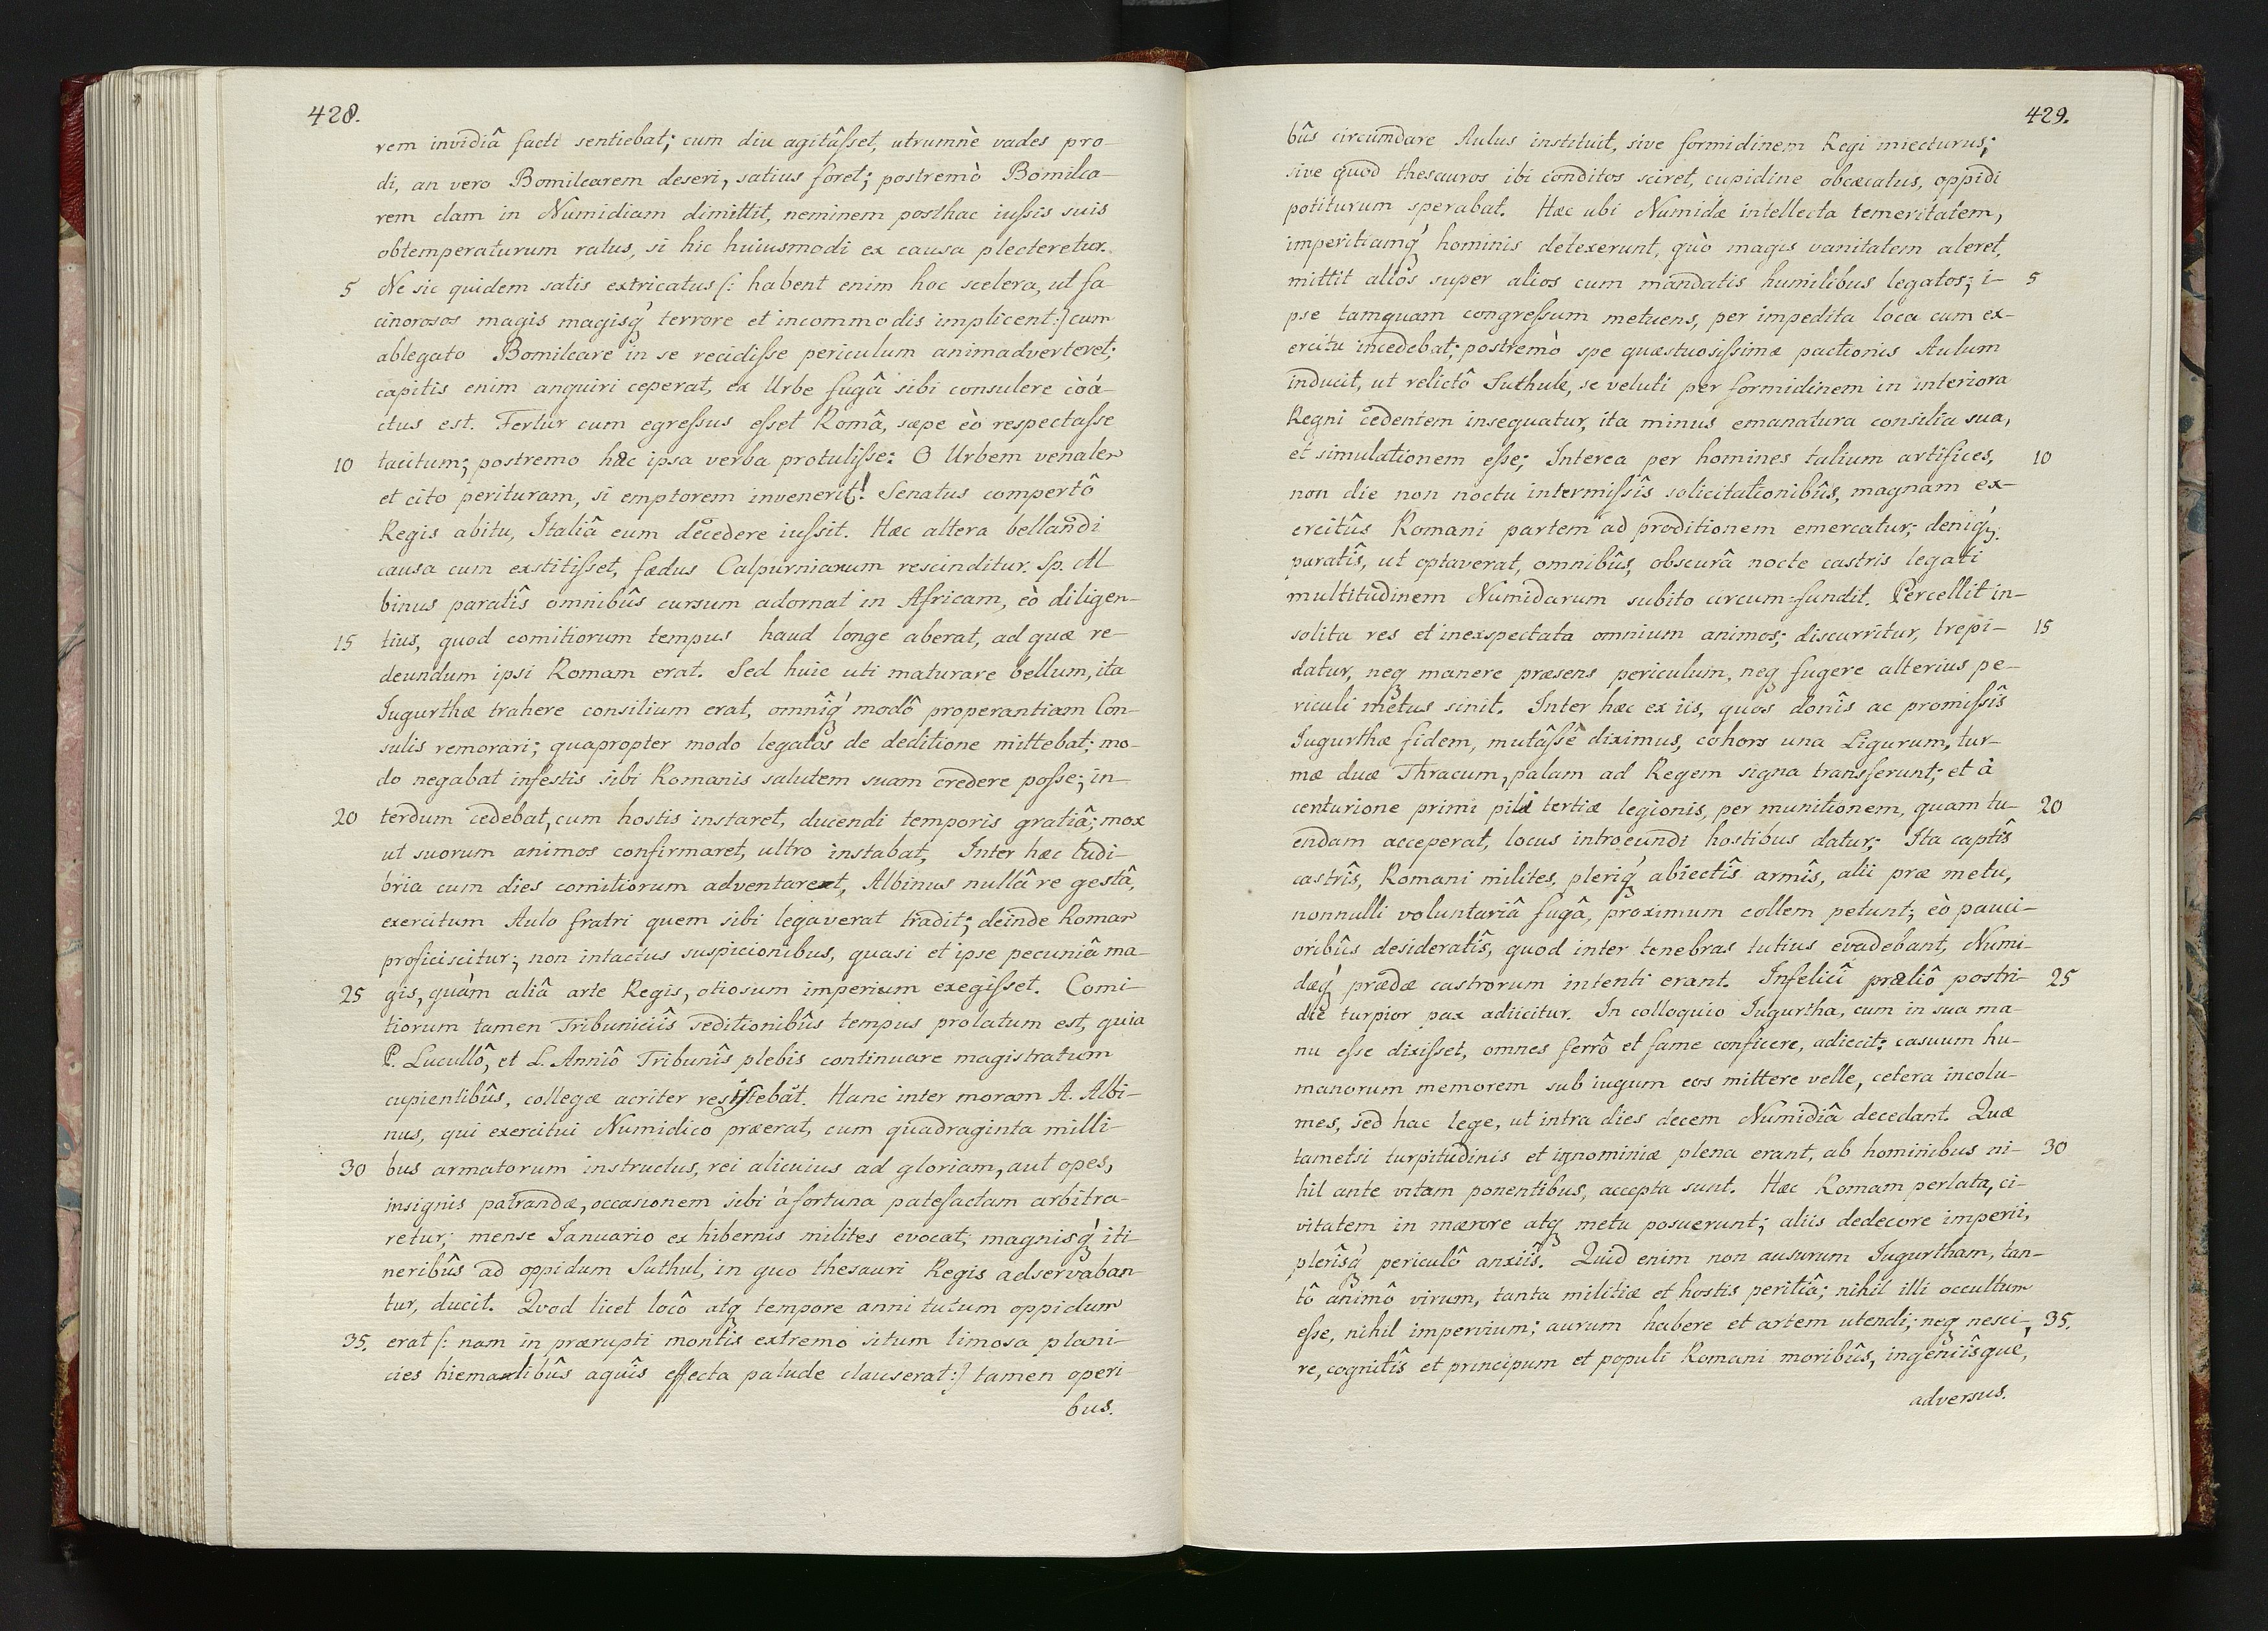 428.
rem invidiâ facti sentiebat; cum diu agitâsset, utrumnè vades pro-
di, an vero Bomilcarem deseri, satius foret; postremò Bomilca-
rem clam in Numidiam dimittit, neminem posthac iussis suis
obtemperaturum ratus, si hic huiusmodi ex causa plecteretur.
5 Ne sic quidem satis extricatus /: habent enim hoc scelera, ut fa-
cinorosos magis magisq́ terrore et incommodis implicent :/ cum
ablegato Bomilcare in se recidisse periculum animadverteret;
capitis enim anquiri ceperat, ex Urbe fugâ sibi consulere còá-
ctus est. Fertur cum egressus esset Româ, sæpe èò respectasse
10 tacitum; postremo hæc ipsa verba protulisse: O Urbem venalem
et cito perituram, si emptorem invenerit! Senatus compertô
Regis abitu, Italiâ eum decedere iussit. Hæc altera bellandi
causa cum exstitisset, fædus Calpurnianum rescinditur. Sp. Al
binus paratîs omnibûs cursum adornat in Africam, èò diligen-
15 tius, quod comitiorum tempus haud longe aberat, ad quæ re-
deundum ipsi Romam erat. Sed huic uti maturare bellum, ita
Iugurthæ trahere consilium erat, omnîq́ modô properantiam Con-
sulis remorari; quapropter modo legatos de deditione mittebat; mo-
do negabat infestis sibi Romanis salutem suam credere posse; in-
20 terdum cedebat, cum hostis instaret, ducendi temporis gratiâ; mox
ut suorum animos confirmaret, ultro instabat, Inter hæc ludi-
bria cum dies comitiorum adventaret, Albinus nullâ re gestâ,
exercitum Aulo fratri quem sibi legaverat tradit; deinde Romam
proficiscitur; non intactus suspicionibus, quasi et ipse pecuniâ ma-
25 gis, quàm aliâ arte Regis, otiosum imperium exegisset. Comi-
tiorum tamen Tribuniciîs seditionibûs tempus prolatum est, quia
P. Lucullô, et L. Anniô Tribunîs plebis continuare magistratum
cupientibûs, collegæ acriter resistebat. Hanc inter moram A. Albi-
nus, qui exercitui Numidico præerat, cum quadraginta milli-
30 bus armatorum instructus, rei alicuius ad gloriam, aut opes,
insignis patrandæ, occasionem sibi à fortuna patefactam arbitra-
retur; mense Ianuario ex hibernis milites evocat; magnisq́ iti-
neribûs ad oppidum Suthul, in quo thesauri Regis adservaban-
tur, ducit. Quod licet locô atq tempore anni tutum oppidum
35. erat /: nam in prærupti montis extremo situm limosa plani-
cies hiemantibûs aquîs effecta palude clauserat :/ tamen operi
bus.
429.
bûs circumdare Aulus instituit, sive formidinem Regi iniecturus;
sive quod thesauros ibi conditos sciret, cupidine obcæcatus, oppidi
potiturum sperabat. Hæc ubi Numidæ intellecta temeritatem,
imperitiamq́ hominis detexerunt, quò magis vanitatem aleret,
mittit alios super alios cum mandatis humilibus legatos; i- 5
pse tamquam congressum metuens, per impedita loca cum ex-
ercitu incedebat; postremò spe quæstuosissimæ pactionis Aulum
inducit, ut relictô Suthule, se veluti per formidinem in interiora
Regni cedentem insequatur, ita minus emanatura consilia sua,
et simulationem esse; Interea per homines talium artifices, 10
non die non noctu intermissîs solicitationibûs, magnam ex-
ercitûs Romani partem ad proditionem emercatur; deniq́;
paratîs, ut optaverat, omnibûs, obscurâ nocte castris legati
multitudinem Numidarum subito circum-fundit. Percellit in-
solita res et inexspectata omnium animos; discurritur, trepi- 15
datur, neq manere præsens periculum, neq fugere alterius pe-
riculi metus sinit. Inter hæc ex iis, quos donîs ac promissîs
Iugurthæ fidem, mutâssê diximus, cohors una Ligurum, tur-
mæ duæ Thracum, palam ad Regem signa transferunt; et à
centurione primi pili tertiæ legionis, per munitionem, quam tu- 20
endam acceperat, locus introeundi hostibus datur; Ita captîs
castrîs, Romani milites, pleriq́ abiectîs armîs, alii præ metu,
nonnulli voluntariâ fugâ, proximum collem petunt; èò pauci-
oribûs desideratîs, quod inter tenebras tutius evadebant, Numi-
dæq́ prædæ castrorum intenti erant. Infelici prœliô postri- 25
die turpior pax adiicitur. In colloquio Iugurtha, cum in sua ma-
nu esse dixisset, omnes ferrô et fame conficere, adiecit: casuum hu-
manorum memorem sub iugum eos mittere velle, cetera incolu-
mes, sed hac lege, ut intra dies decem Numidiâ decedant. Quæ
tametsi turpitudinis et ignominiæ plena erant, ab hominibus ni- 30
hil ante vitam ponentibus, accepta sunt. Hæc Romam perlata, ci-
vitatem in mærore atq metu posuerunt; aliis dedecore imperii,
plerîsq́ periculô anxiîs. Quid enim non ausurum Iugurtham, tan-
tô animô virum, tanta militiæ et hostis peritiâ; nihil illi occultum
esse, nihil impervium; aurum habere et artem utendi; neq nesci- 35.
re, cognitîs et principum et populi Romani moribûs, ingeniîsque,
adversus.